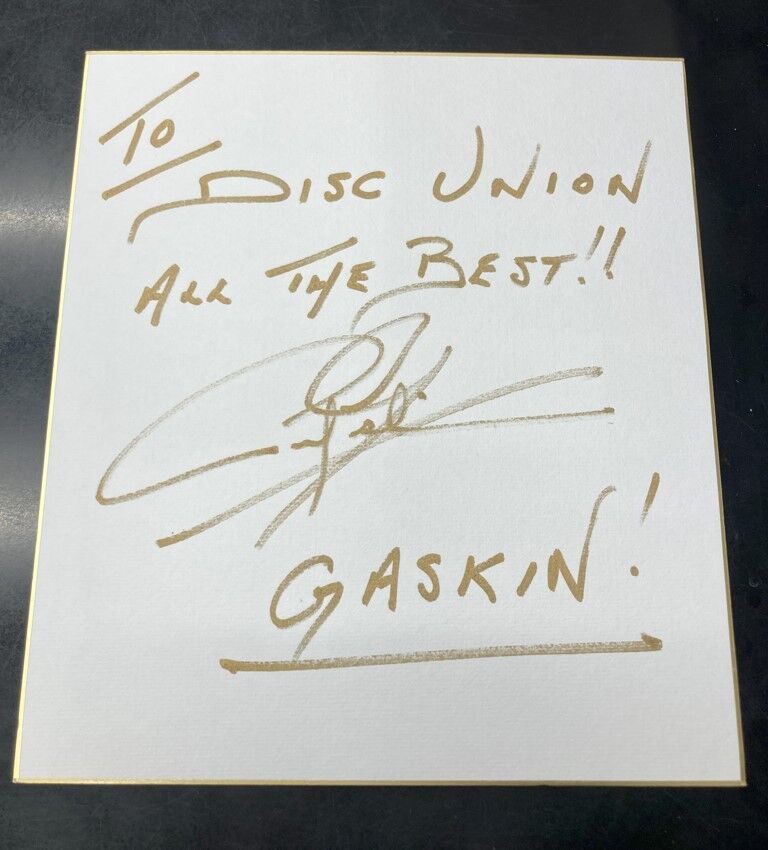 TO
DISC UNION
ALL THE BEST!!
GASKIN!